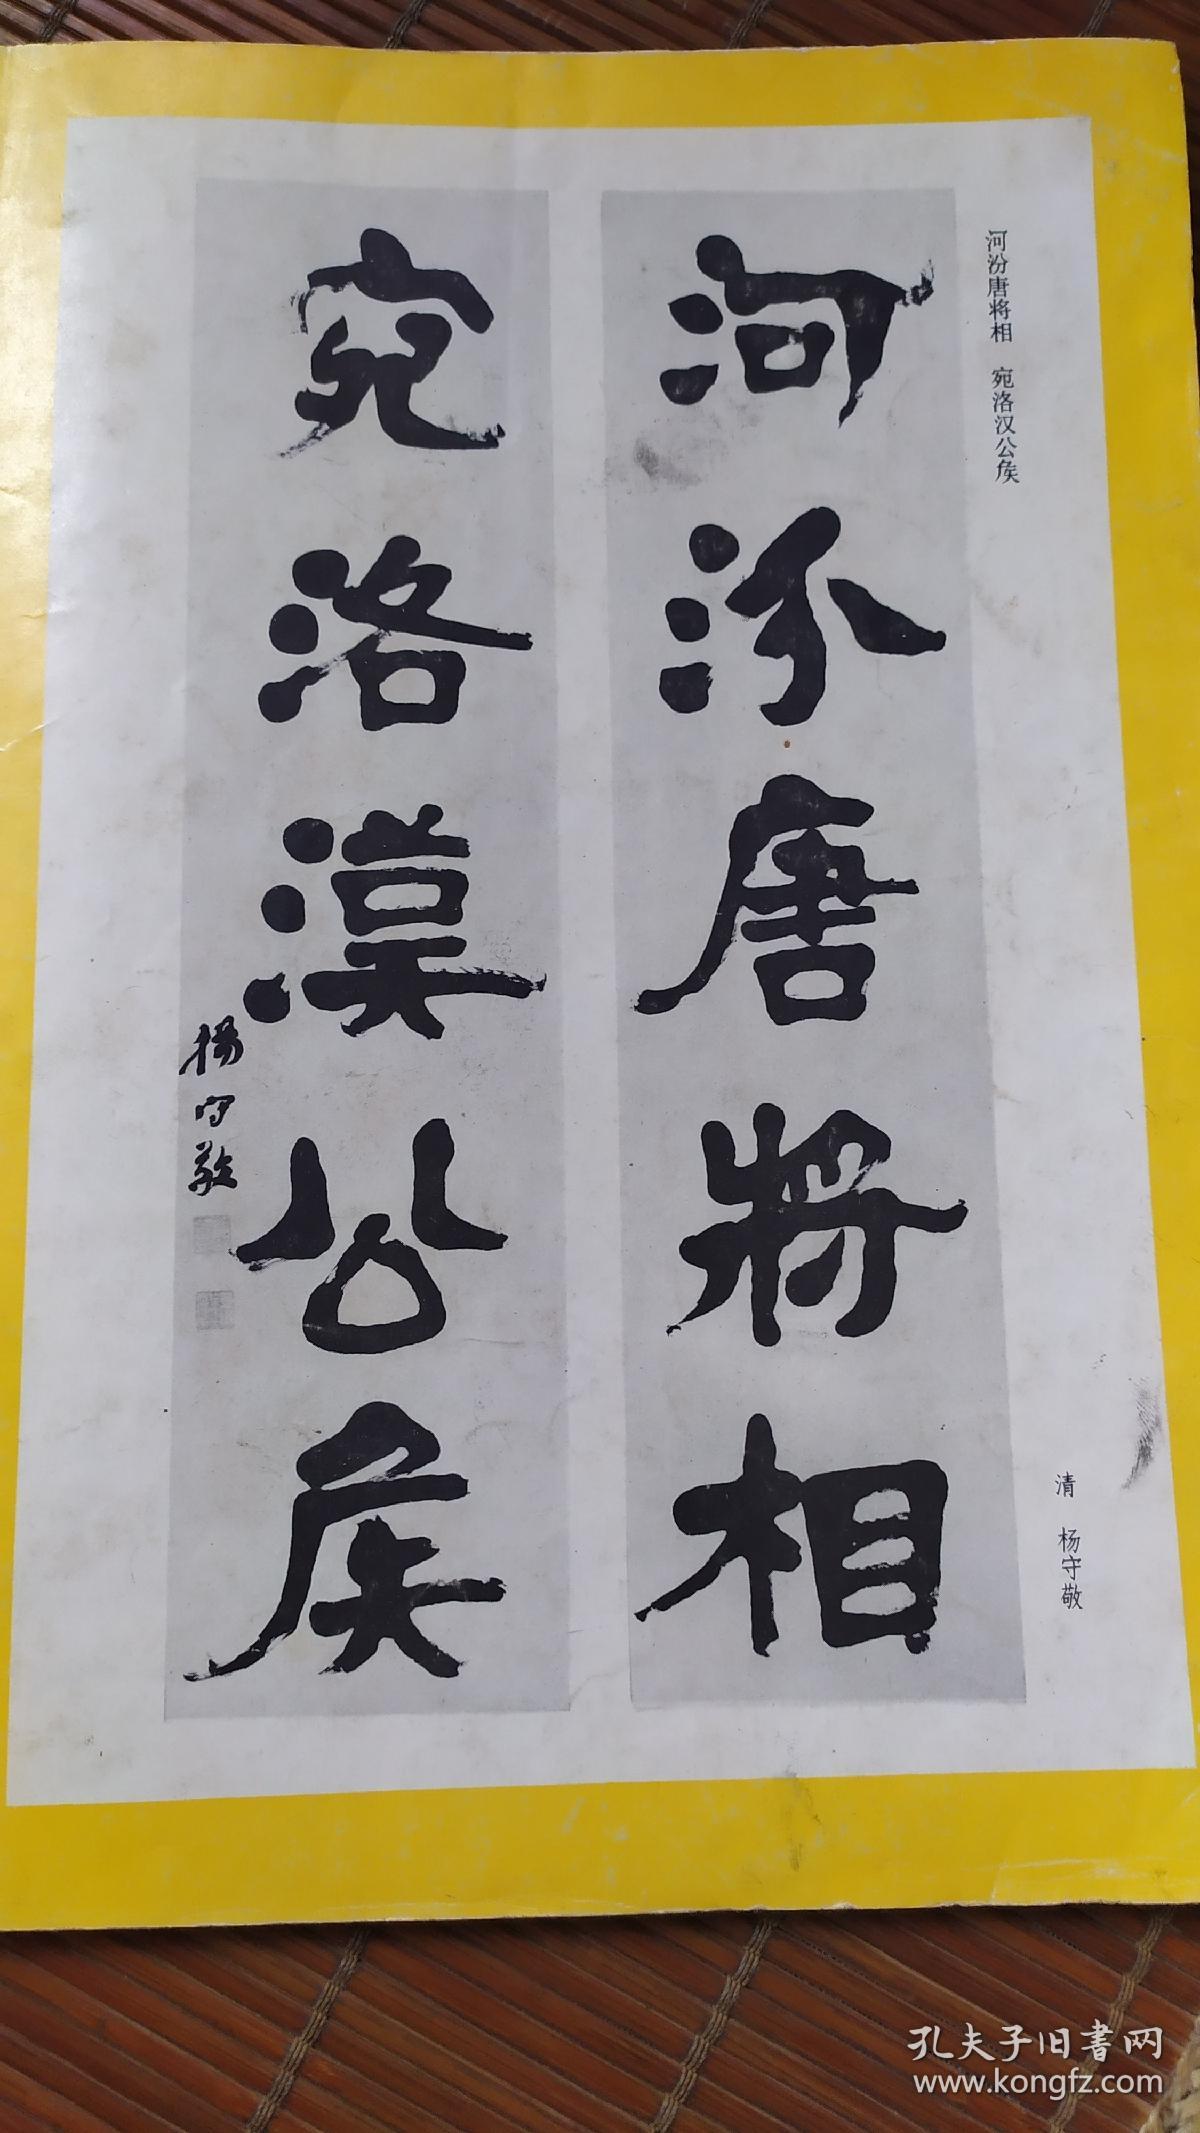 河汾唐将相　宛洛汉公矦
河汾唐將相
宛洛漢公矦
楊守敬
清　杨守敬
孔夫子旧書网
www.kongfz.com